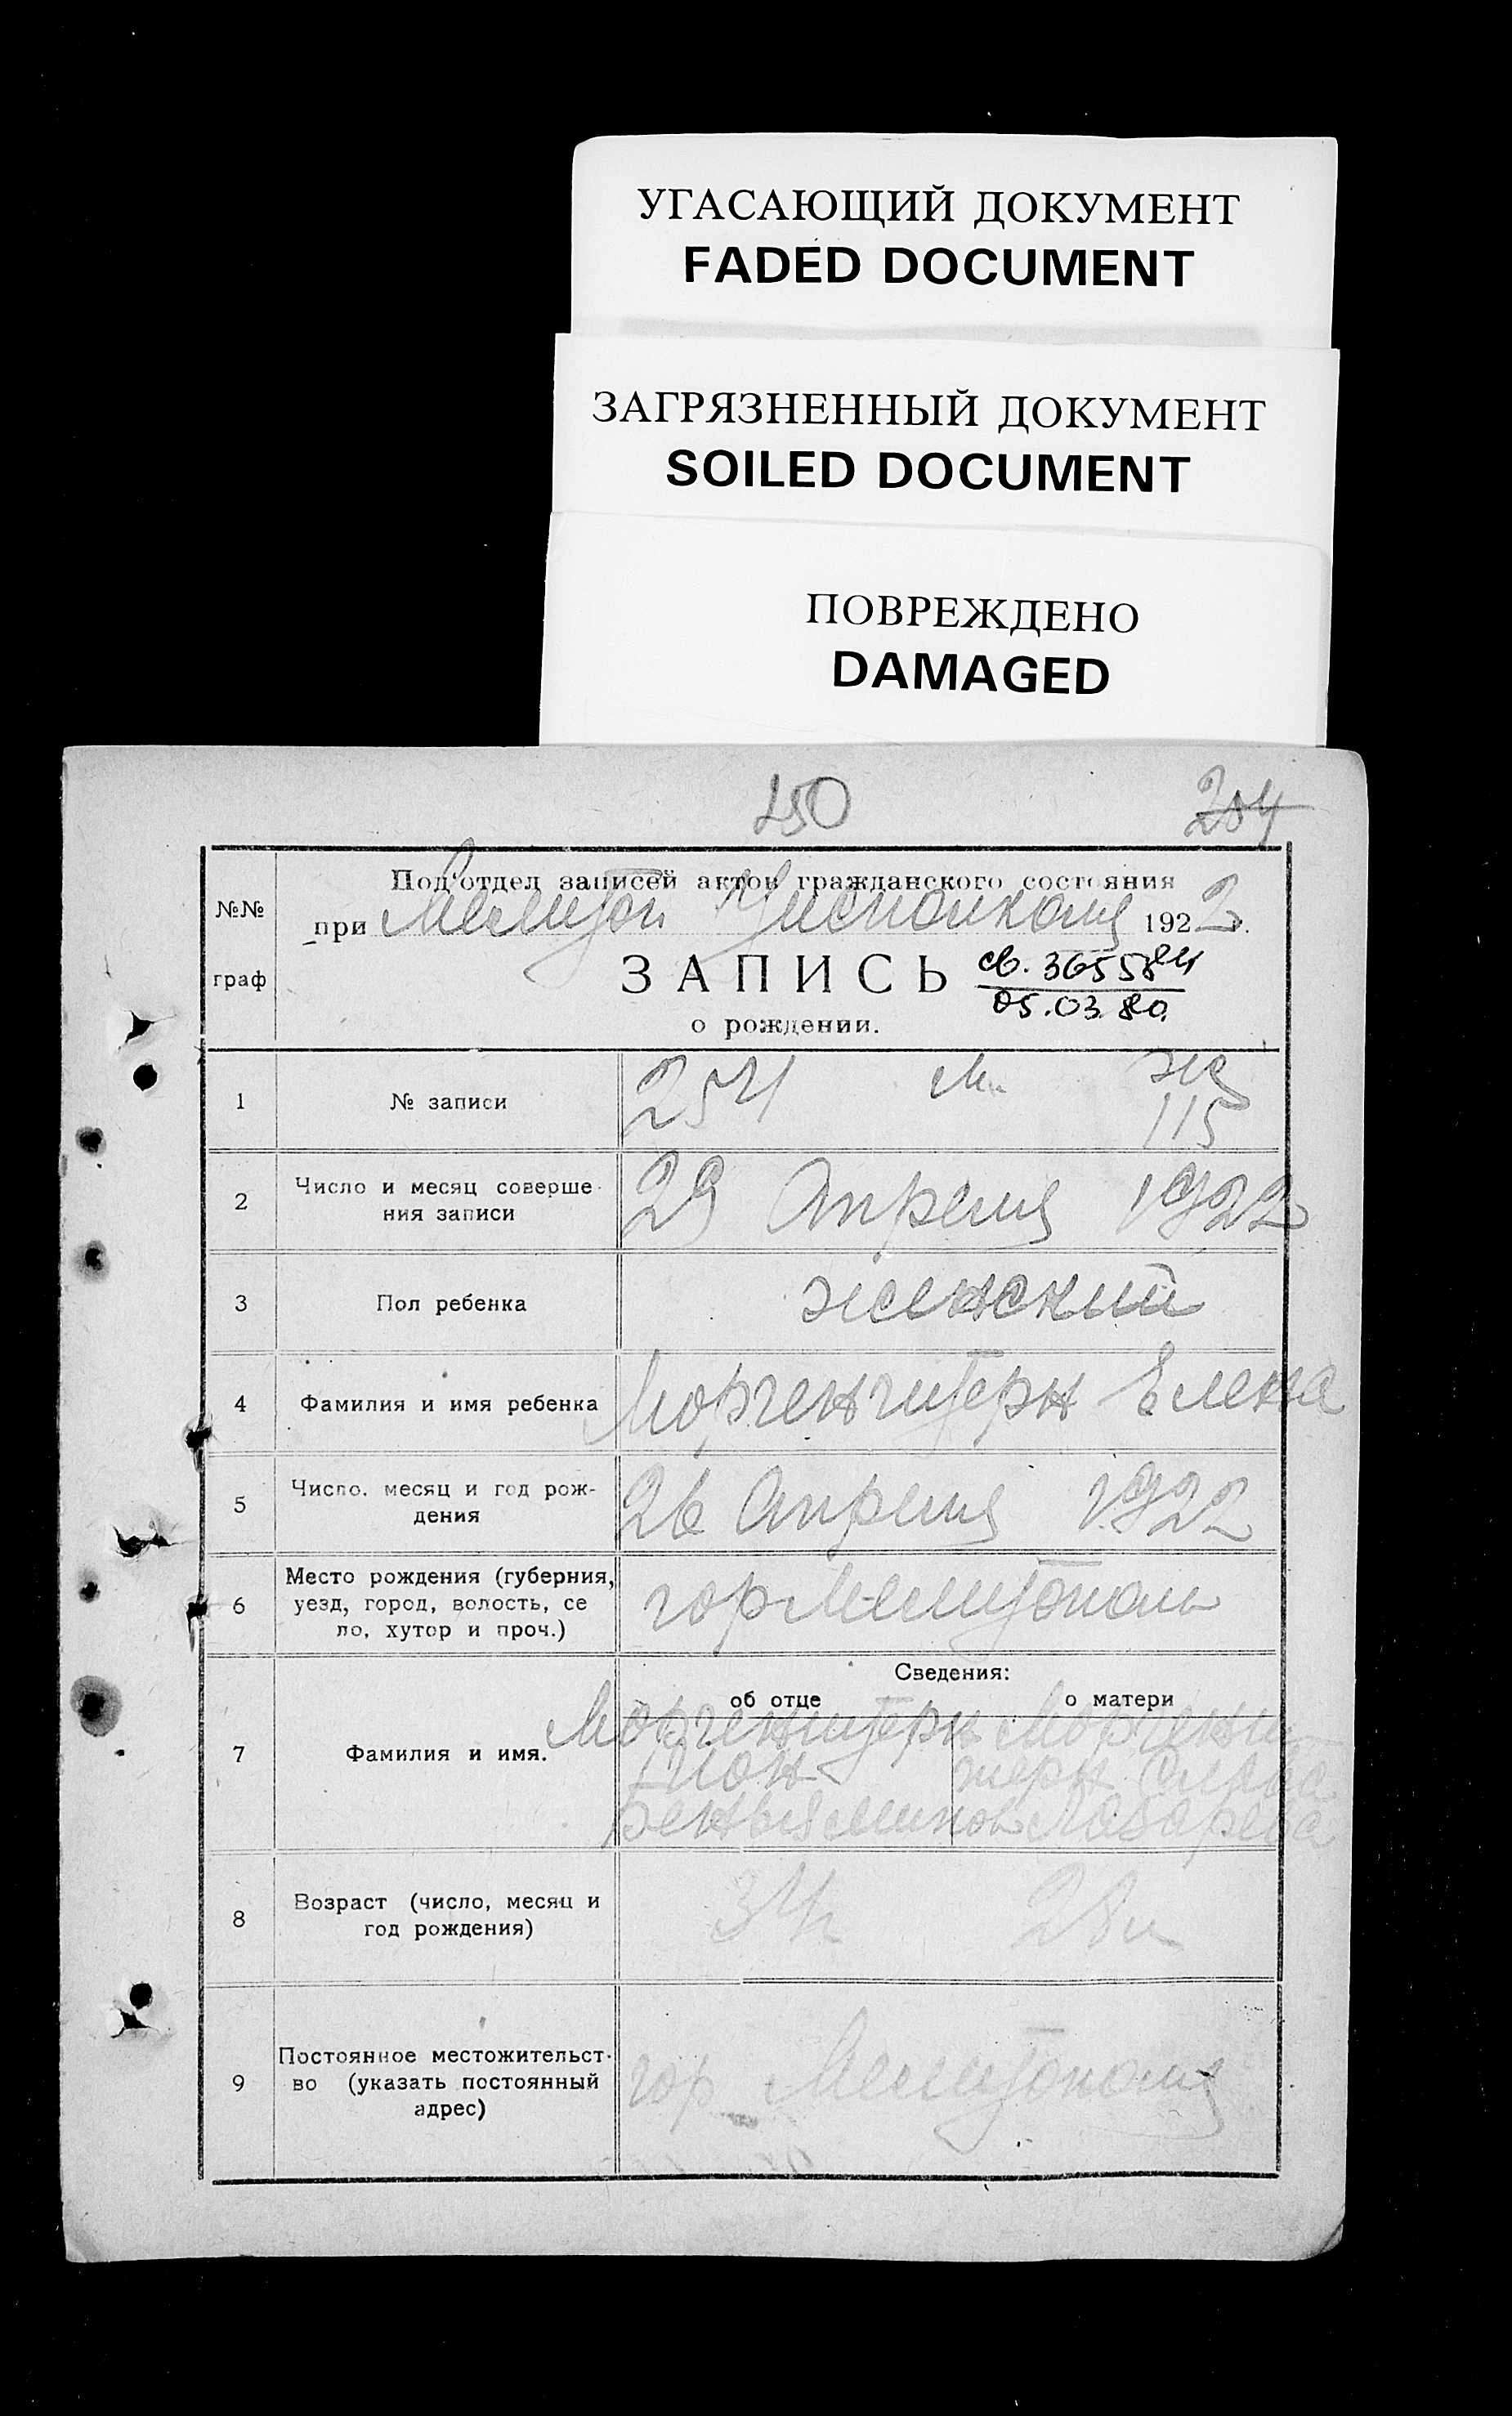 УГАСАЮЩИЙ ДОКУМЕНТ
FADED DOCUMENT
ЗАГРЯЗНЕННЫЙ ДОКУМЕНТ
SOILED DOCUMENT
ПОВРЕЖДЕНО
DAMAGED
250
204
Под'отдел записей актов гражданского состояния
№№
при Мелитоп Уисполкома 1922 г.
граф
ЗАПИСЬ
св. 365584
05.03.80.
о рождении.
1 № записи 254 м. ж
115
2 Число и месяц соверше-
ния записи
29 Апреля 1922
3 Пол ребенка женский
4 Фамилия и имя ребенка Моргенштерн Елена
5 Число, месяц и год рож-
дения
26 Апреля 1922
6 Место рождения (губерния,
уезд, город, волость, се
ло, хутор и проч.)
гор Мелитополь
Сведения:
об отце о матери
7 Фамилия и имя.
Моргенштерн
Ион
Беньяминов
Моргенш
терн
Лазарева
8 Возраст (число, месяц и
год рождения)
34 л 28 л
9 Постоянное местожительст-
во (указать постоянный
адрес)
гор Мелитополь